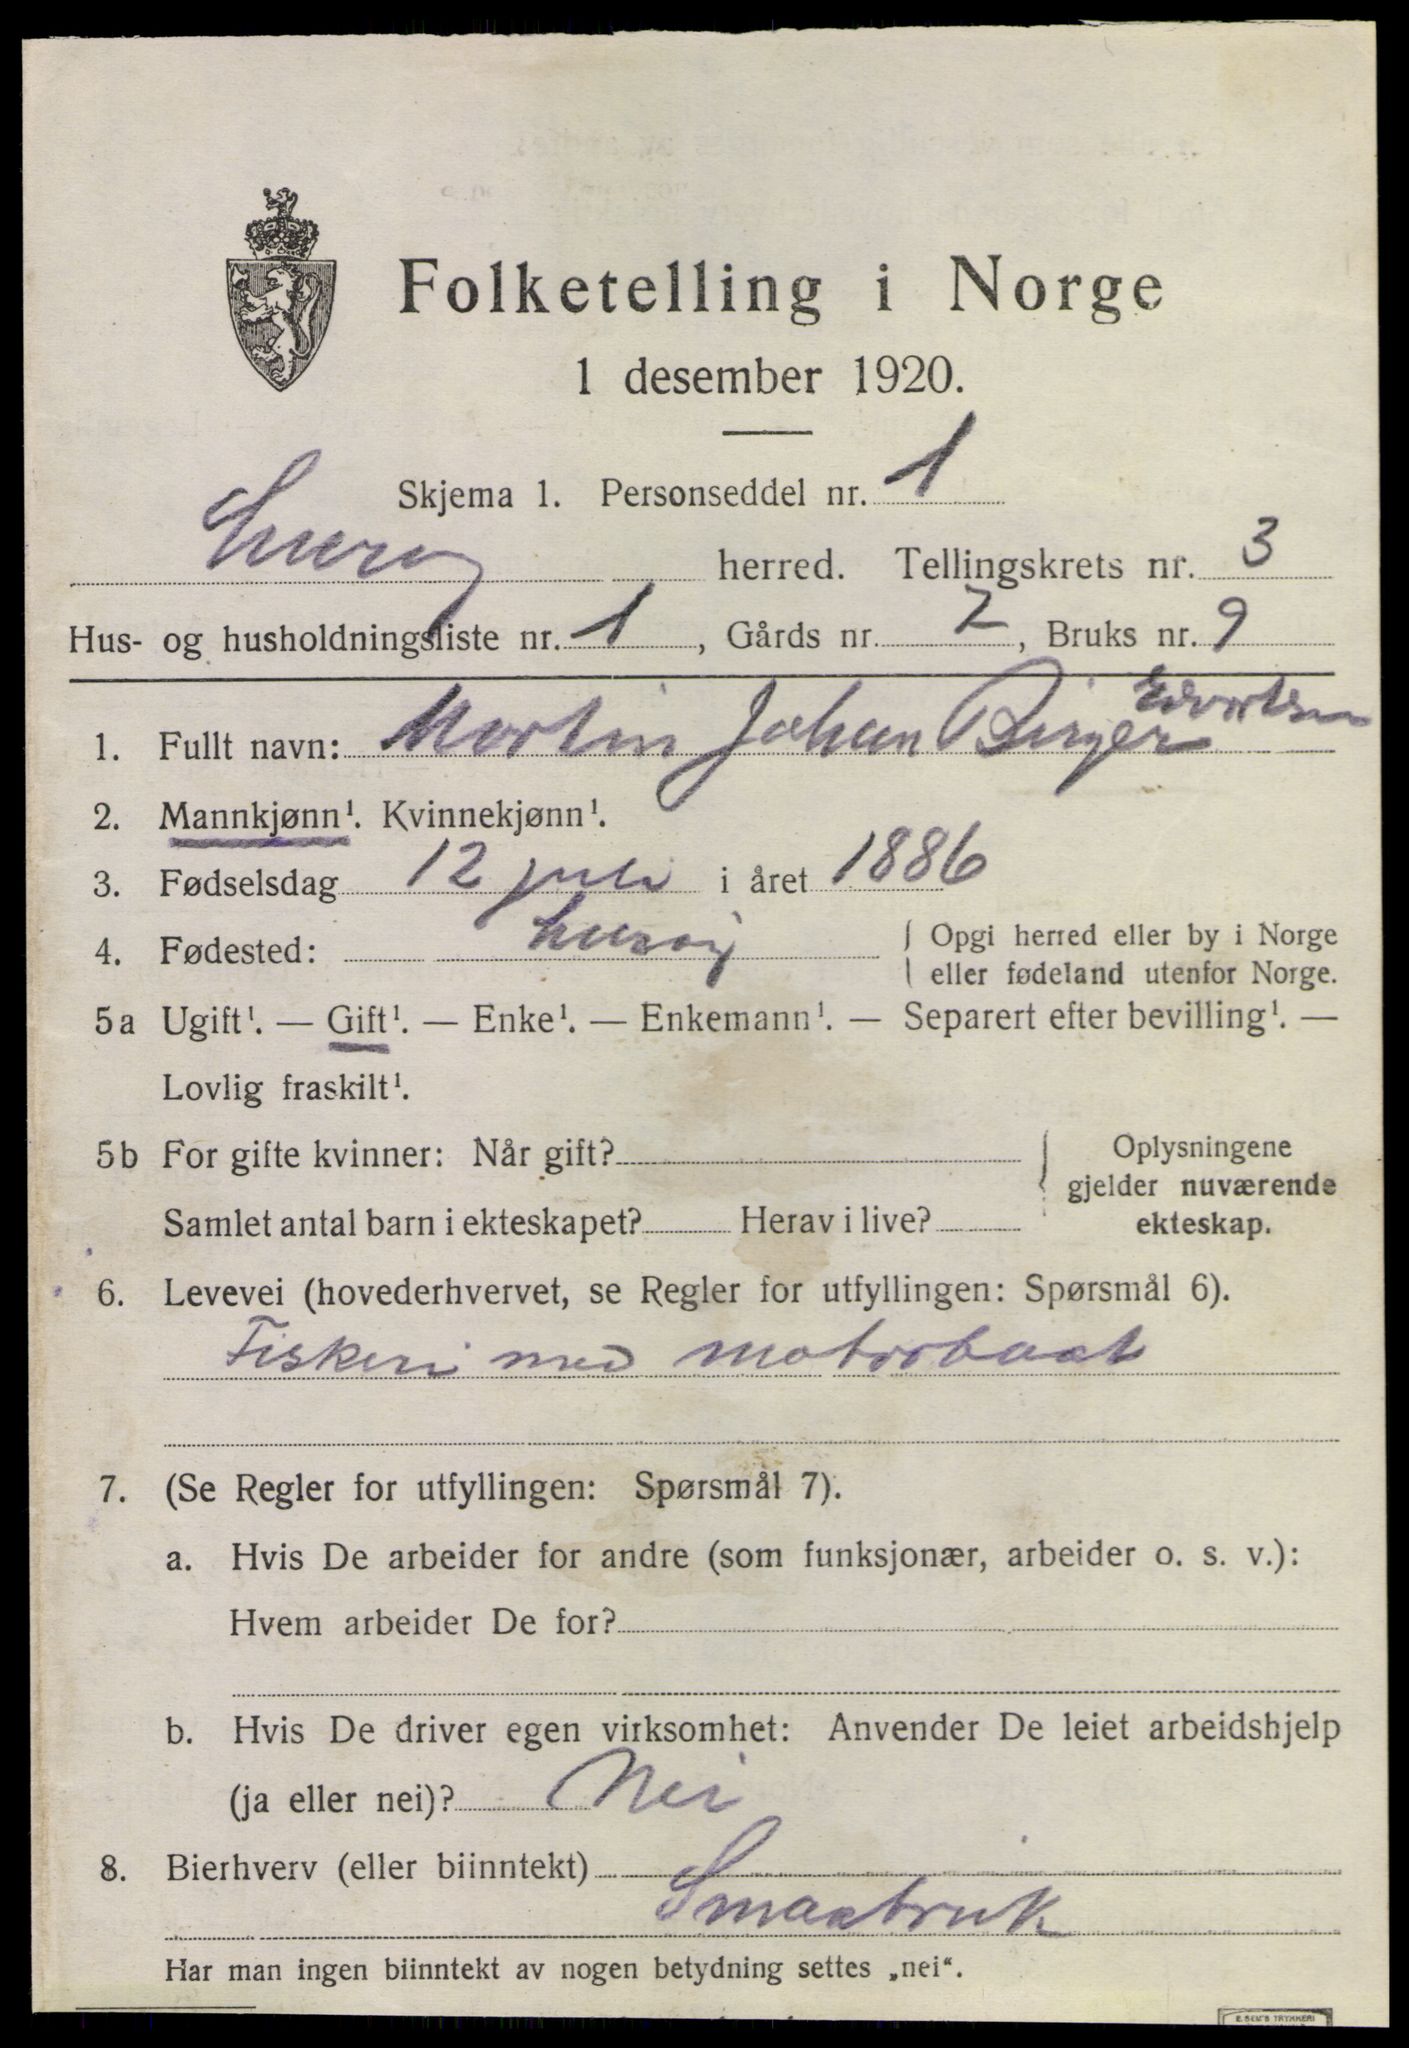 Folketelling i Norge
1 desember 1920.
Skjema 1. Personseddel nr. 1
Lurøy herred. Tellingskrets nr. 3
Hus- og husholdningsliste nr. 1, Gårds nr. 2, Bruks nr. 9
1. Fullt navn: Martin Johan Birger Edvartsen
2. Mannkjønn¹. Kvinnekjønn¹.
3. Fødselsdag 12 juli i året 1886
4. Fødested: Lurøy { Opgi herred eller by i Norge
eller fødeland utenfor Norge.
5a Ugift¹. — Gift¹. — Enke¹. — Enkemann¹. — Separert efter bevilling¹. —
Lovlig fraskilt¹.
5b For gifte kvinner: Når gift? { Oplysningene
gjelder nuværende
Samlet antal barn i ekteskapet? Herav i live? ekteskap.
6. Levevei (hovederhvervet, se Regler for utfyllingen: Spørsmål 6).
Fiskeri med motorbaat
7. (Se Regler for utfyllingen: Spørsmål 7).
a. Hvis De arbeider for andre (som funksjonær, arbeider o. s. v.):
Hvem arbeider De for?
b. Hvis De driver egen virksomhet: Anvender De leiet arbeidshjelp
(ja eller nei)? Nei
8. Bierhverv (eller biinntekt)
Smaabruk
Har man ingen biinntekt av nogen betydning settes „nei“.
E. SEM'S TRYKKERI